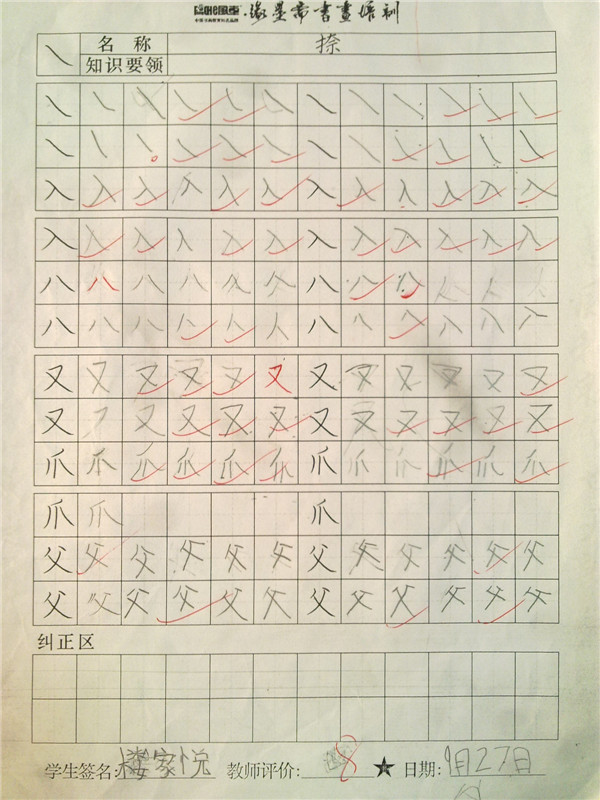 缘墨斋書畫培训
㇏ 名称 捺
知识要领
㇏ ㇏ ㇏ ㇏ ㇏ ㇏ ㇏ ㇏ ㇏ ㇏ ㇏ ㇏
㇏ ㇏ ㇏ ㇏ ㇏ ㇏ ㇏ ㇏ ㇏ ㇏ ㇏ ㇏
入 入 入 入 入 入 入 入 入 入 入 入
入 入 入 入 入 入 入 入 入 入 入 入
八 八 八 八 八 八 八 八 八 八 八 八
八 八 八 八 八 八 八 八 八 八 八 八
又 又 又 又 又 又 又 又 又 又 又 又
又 又 又 又 又 又 又 又 又 又 又 又
爪 爪 爪 爪 爪 爪 爪 爪 爪 爪 爪 爪
爪 爪 爪
父 父 父 父 父 父 父 父 父 父 父 父
父 父 父 父 父 父 父 父 父 父 父 父
纠正区
学生签名:楼家悦 教师评价: 8 ★ 日期:9月27日